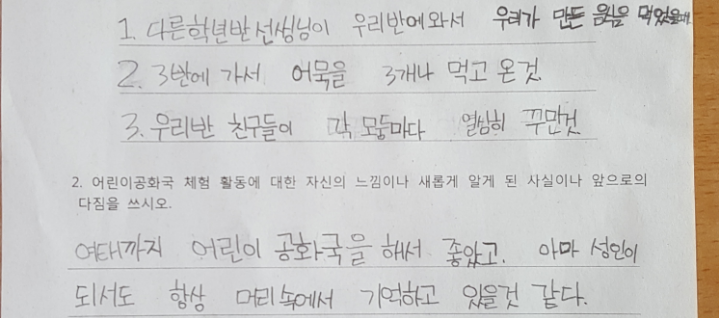 1. 다른학년반선생님이 우리반에와서 우리가 만든 음식을 먹었을때
2. 3반에 가서 어묵을 3개나 먹고 온것
3. 우리반 친구들이 각 모둠마다 열심히 꾸민것
2. 어린이공화국 체험 활동에 대한 자신의 느낌이나 새롭게 알게 된 사실이나 앞으로의
다짐을 쓰시오.
여태까지 어린이 공화국을 해서 좋았고. 아마 성인이
되서도 항상 머리속에서 기억하고 있을것 같다.